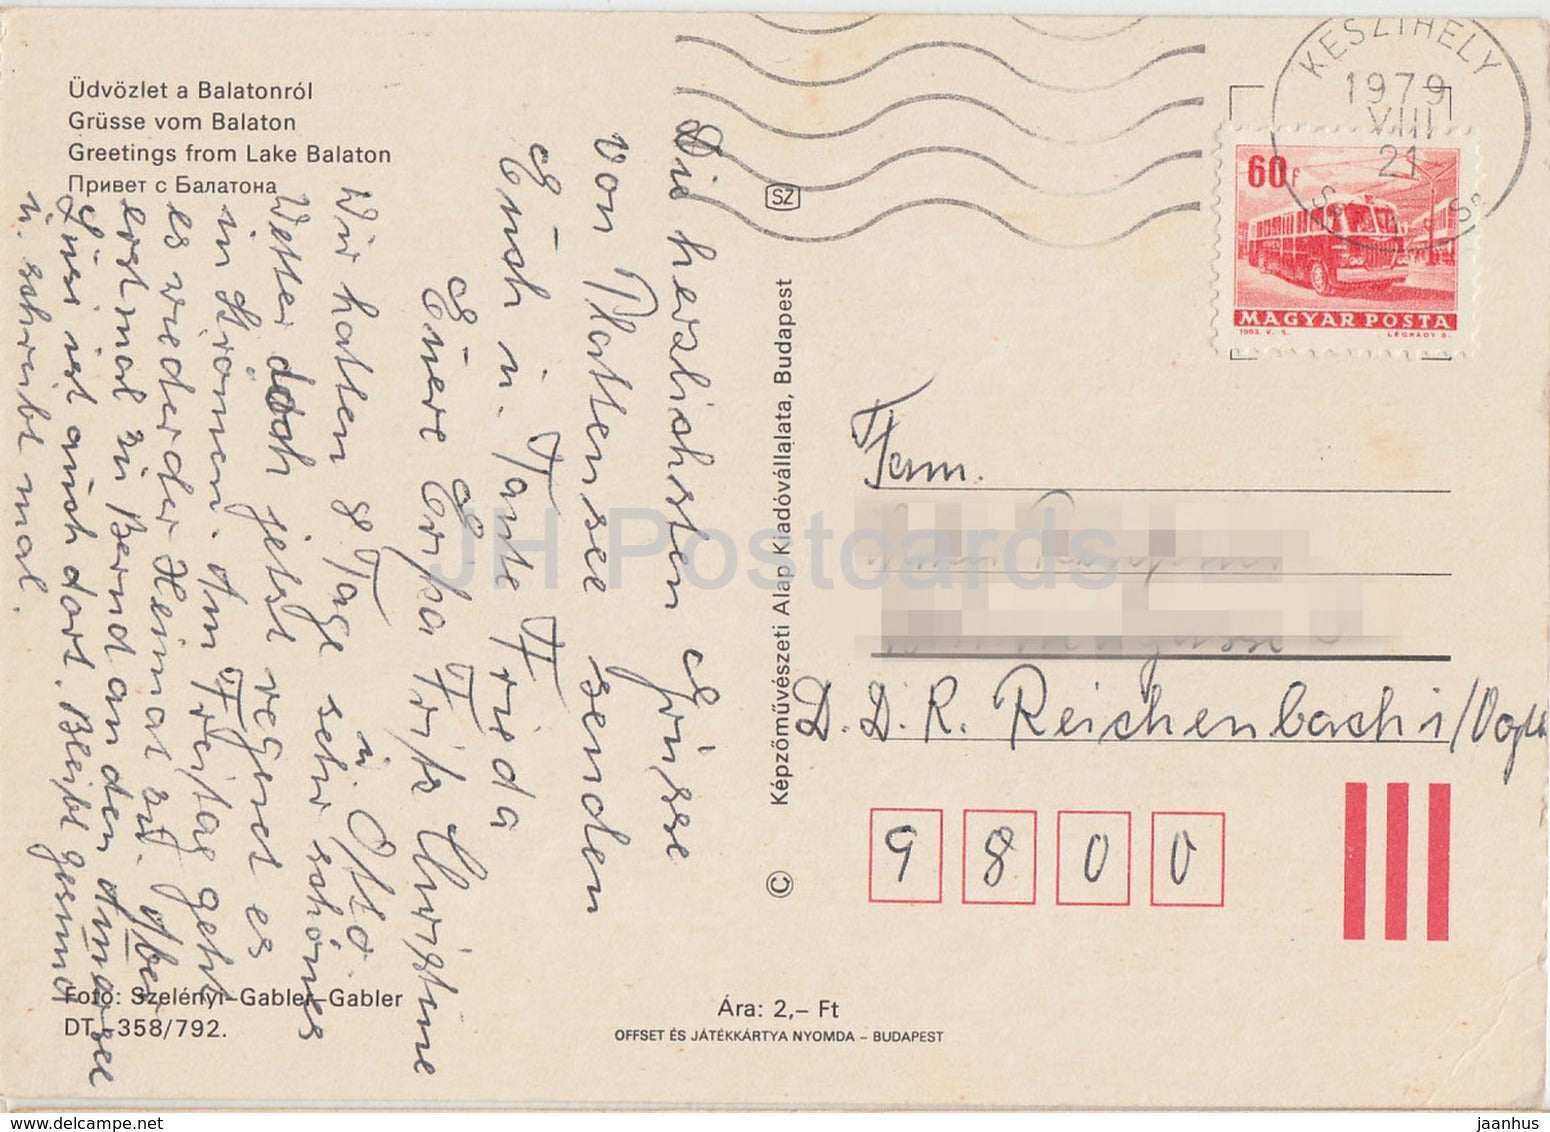 Üdvözlet a Balatonról
Grüsse vom Balaton
Greetings from Lake Balaton
Привет с Балатона
Die herzlichsten Grüsse
von Plattensee senden
Euch u. Tante Frieda
Eure Erika Fritz Christine
u. Otto.
Wir hatten 8 Tage sehr schönes
Wetter doch jetzt regnet es
in Strömen. Am Freitag geht
es wieder der Heimat zu. Aber
erst mal zu Bernd an den
ist auch dort. Bleibt gesund
u. schreibt mal.
Foto: Szelényi–Gabler–Gabler
DT. 358/792.
SZ
Képzőművészeti Alap Kiadóvállalata, Budapest
©
Ára: 2,– Ft
OFFSET ÉS JÁTÉKKÁRTYA NYOMDA – BUDAPEST
KESZTHELY
1979
VIII
21
60 f
MAGYAR POSTA
1963. V. 5.
LÉGRÁDY S.
Fam.
D. D. R. Reichenbach i/Vogtl
9 8 0 0
JH Postcards
www.delcampe.net
jaanhus